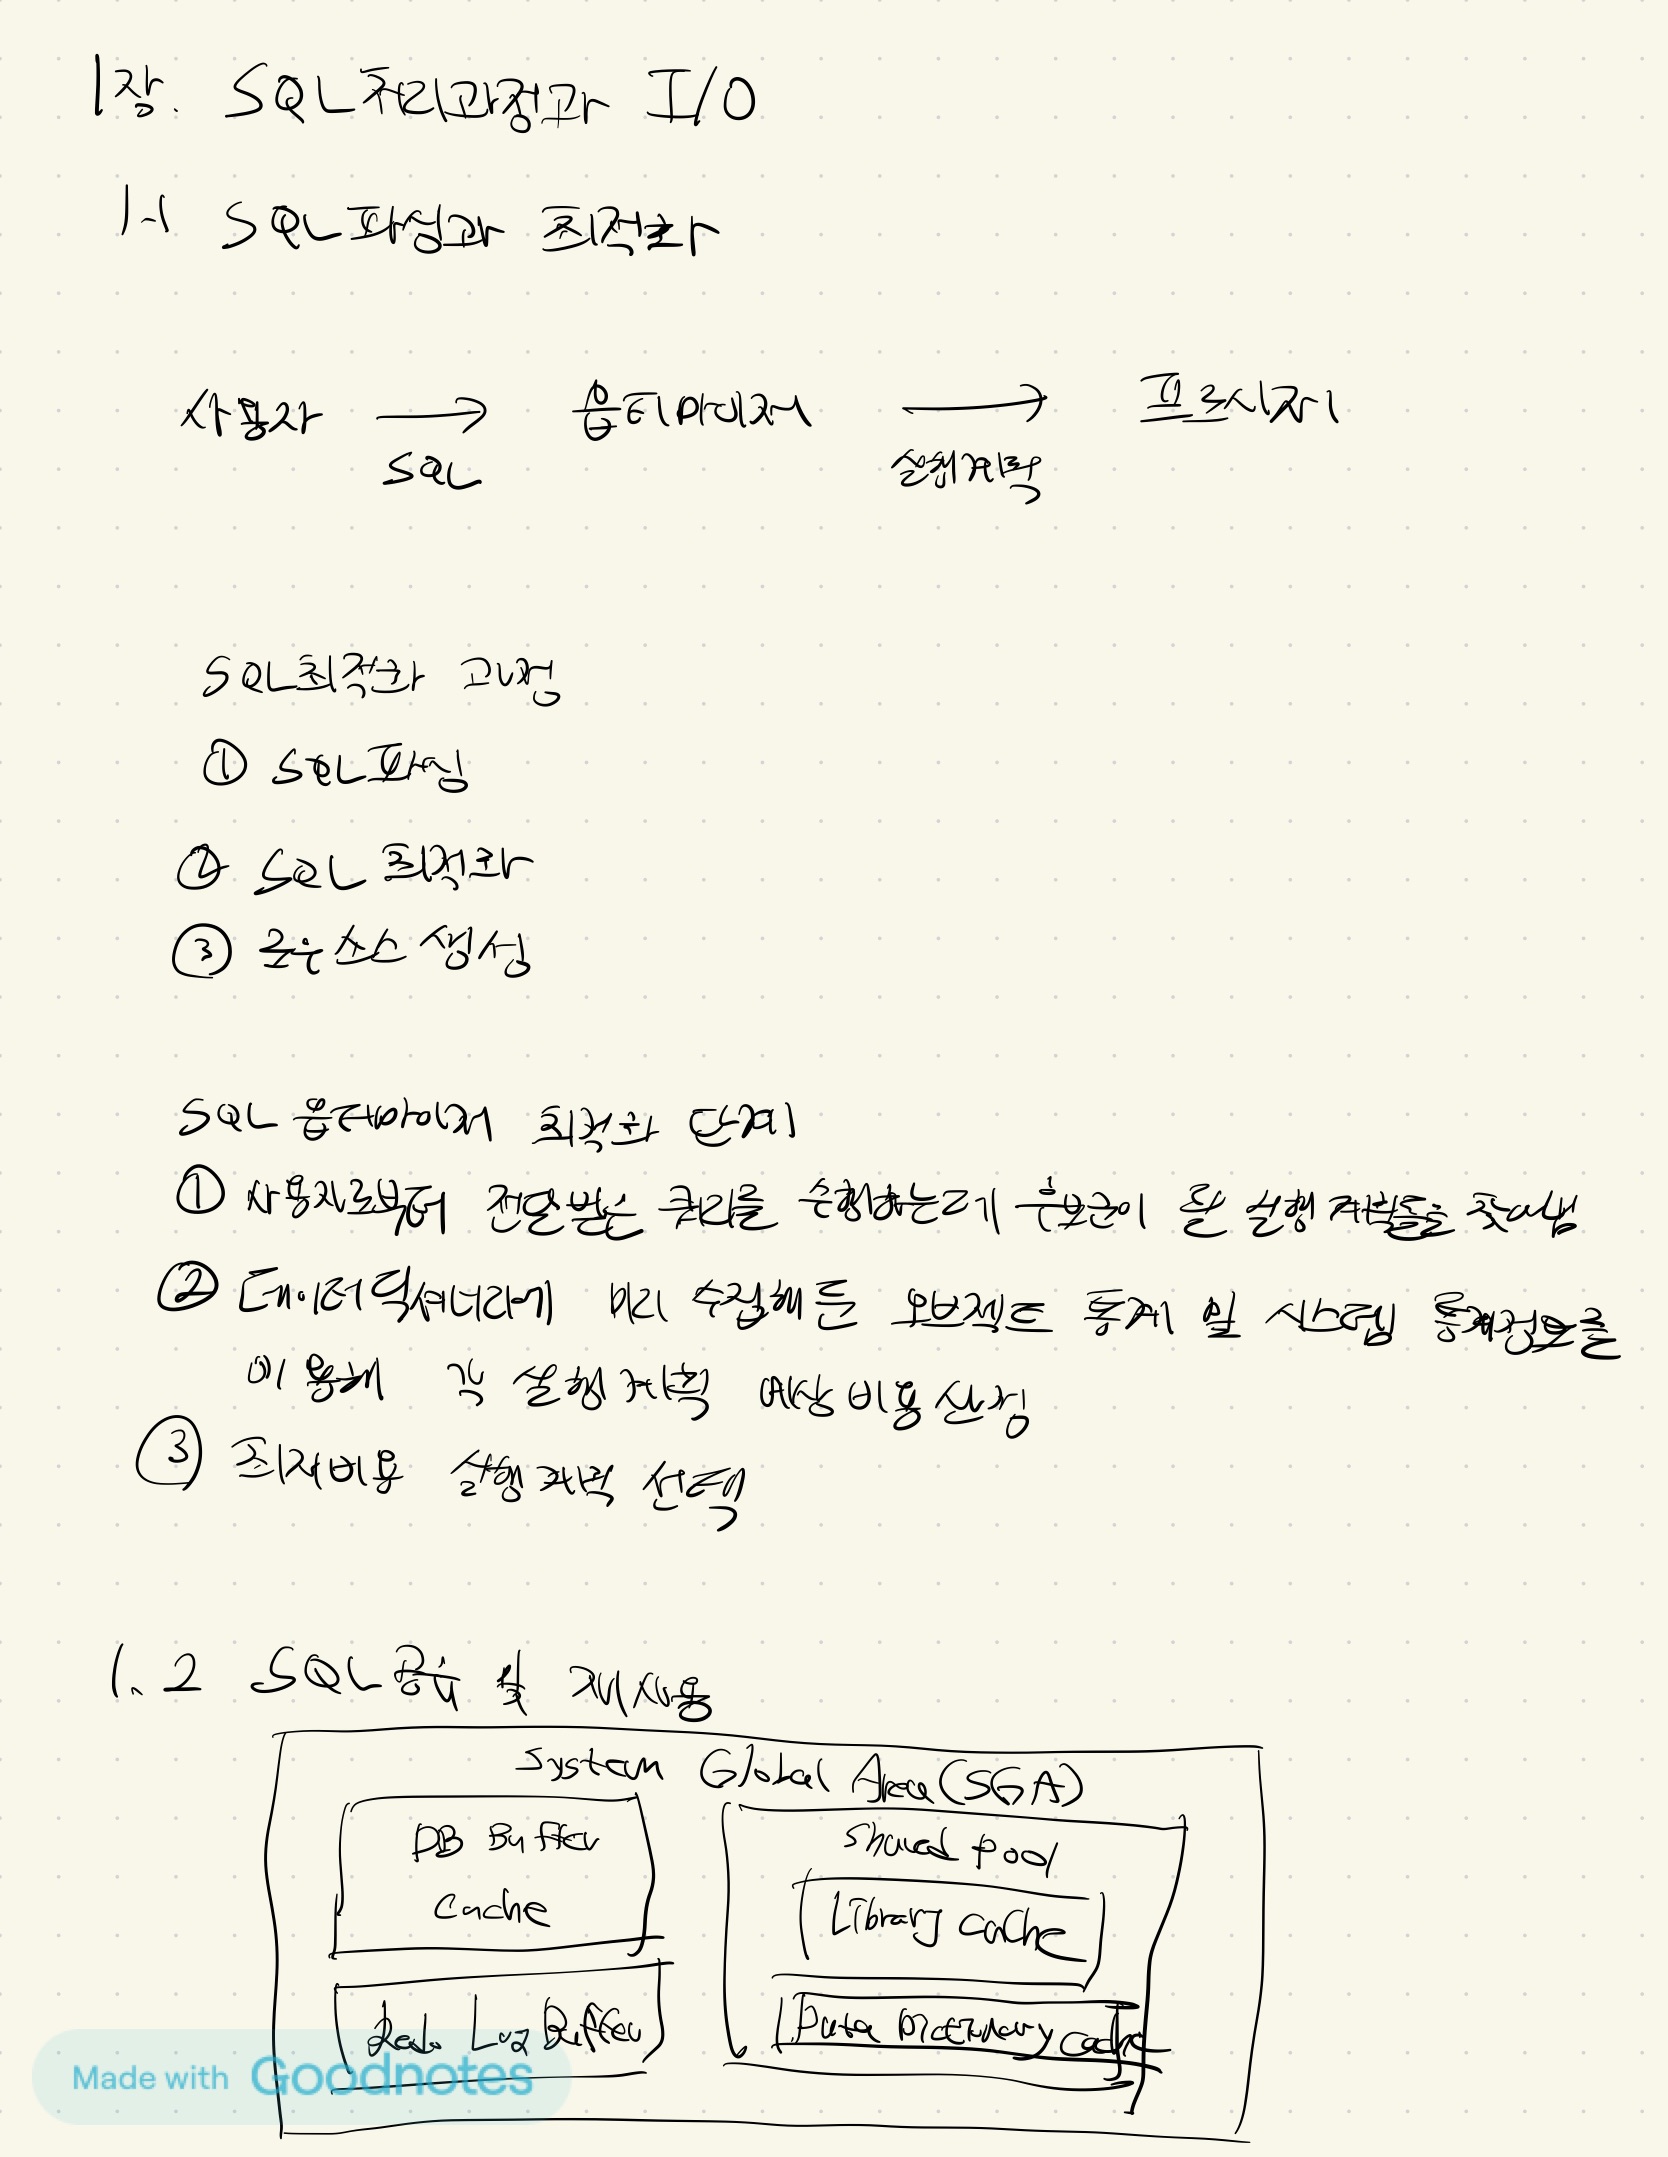 1장. SQL처리과정과 I/O
1-1 SQL파싱과 최적화
사용자 → 옵티마이저 → 프로시저
SQL 실행계획
SQL최적화 과정
① SQL파싱
② SQL 최적화
③ 로우소스 생성
SQL 옵티마이저 최적화 단계
① 사용자로부터 전달받은 쿼리를 수행하는데 후보군이 될 실행계획들을 찾아냄
② 데이터딕셔너리에 미리 수집해 둔 오브젝트 통계 및 시스템 통계정보를
이용해 각 실행계획 예상비용산정
③ 최저비용 실행계획 선택
1.2 SQL공유 및 재사용
System Global Area(SGA)
DB Buffer
Cache
Shared Pool
Library Cache
Redo Log Buffer
Data Dictionary Cache
Made with Goodnotes